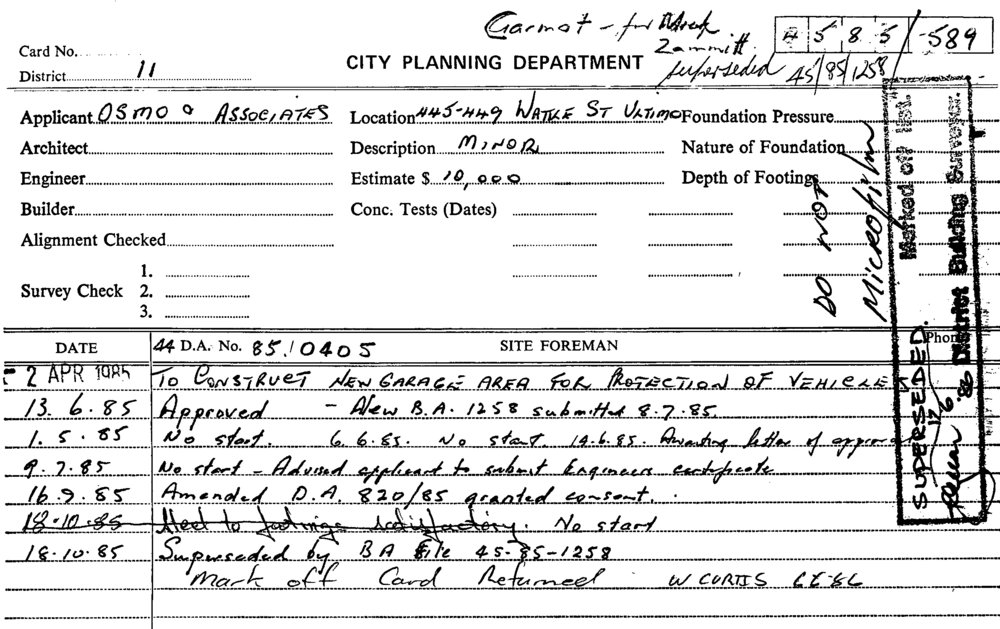 Garmot - for
Zammitt
superseded
4 5 8 5 / 589
45/85/1258
Card No.
District 11
CITY PLANNING DEPARTMENT
Applicant OSMO & ASSOCIATES
Location 445-449 WATTLE ST ULTIMO
Foundation Pressure
Architect
Description MINOR
Nature of Foundation
Engineer
Estimate $ 10,000
Depth of Footings
Builder
Conc. Tests (Dates)
Alignment Checked
Survey Check
1.
2.
3.
DO NOT
Microfilm
Marked off list.
District Building Surveyor.
SUPERSEDED.
DATE
44 D.A. No. 85/0405
SITE FOREMAN
Phon
2 APR 1985 TO CONSTRUCT NEW GARAGE AREA FOR PROTECTION OF VEHICLES
13.6.85 Approved - New B.A. 1258 submitted 8.7.85.
1.5.85 No start. 6.6.85. No start 14.6.85. Awaiting letter of approval
9.7.85 No start - Advised applicant to submit Engineers certificate
16.9.85 Amended D.A. 820/85 granted consent.
18.10.85 Steel to footings satisfactory. No start
18.10.85 Superseded by BA file 45-85-1258
Mark off Card Returned W CURTIS